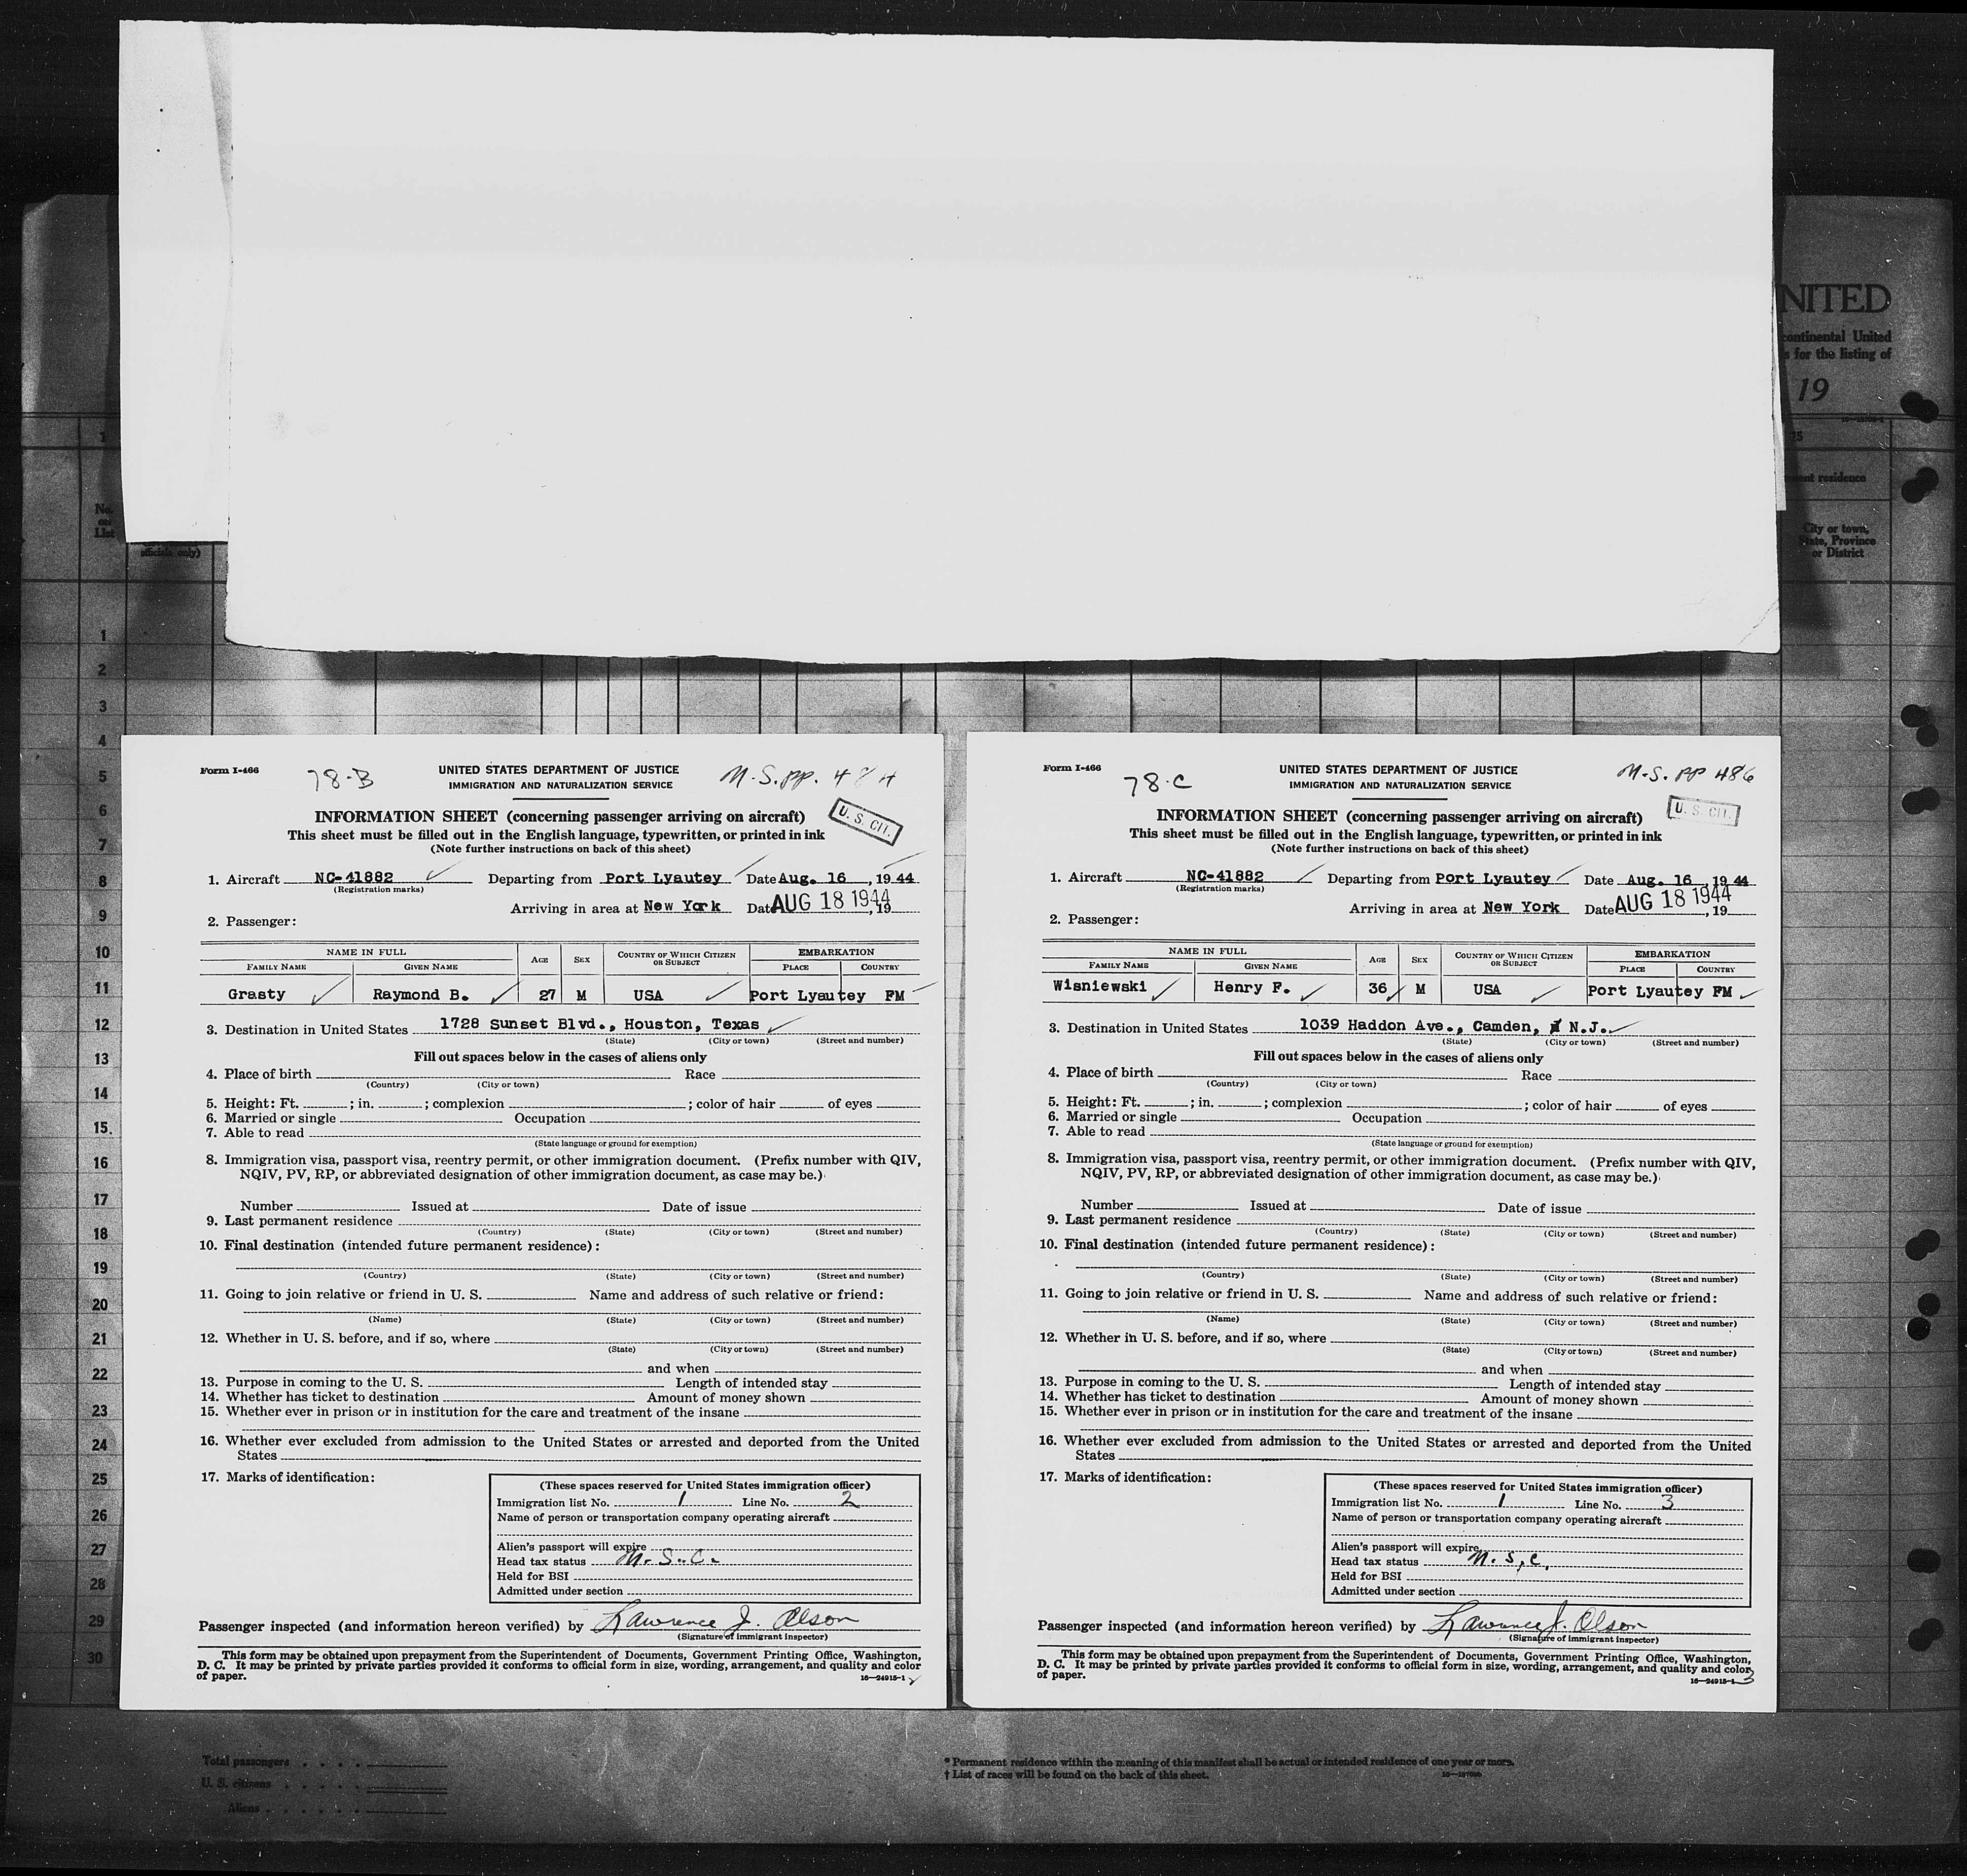 NITED
continental United
s for the listing of
19
15
ent residence
City or town,
State, Province
or District
1
No.
on
List
officials only)
1
2
3
4
5
6
7
8
9
10
11
12
13
14
15.
16
17
18
19
20
21
22
23
24
25
26
27
28
29
30
Form I-466
78-B
UNITED STATES DEPARTMENT OF JUSTICE
IMMIGRATION AND NATURALIZATION SERVICE
M.S. pp. 484
U. S. CIT.
INFORMATION SHEET (concerning passenger arriving on aircraft)
This sheet must be filled out in the English language, typewritten, or printed in ink
(Note further instructions on back of this sheet)
1. Aircraft NC-41882 Departing from Port Lyautey Date Aug. 16, 1944
(Registration marks)
Arriving in area at New York Date AUG 18 1944, 19
2. Passenger:
NAME IN FULL AGE SEX COUNTRY OF WHICH CITIZEN OR SUBJECT EMBARKATION
FAMILY NAME GIVEN NAME PLACE COUNTRY
Grasty Raymond B. 27 M USA Port Lyautey FM
3. Destination in United States 1728 Sunset Blvd., Houston, Texas
(State) (City or town) (Street and number)
Fill out spaces below in the cases of aliens only
4. Place of birth Race
(Country) (City or town)
5. Height: Ft. ; in. ; complexion ; color of hair of eyes
6. Married or single Occupation
7. Able to read
(State language or ground for exemption)
8. Immigration visa, passport visa, reentry permit, or other immigration document. (Prefix number with QIV,
NQIV, PV, RP, or abbreviated designation of other immigration document, as case may be.)
Number Issued at Date of issue
9. Last permanent residence
(Country) (State) (City or town) (Street and number)
10. Final destination (intended future permanent residence):
(Country) (State) (City or town) (Street and number)
11. Going to join relative or friend in U. S. Name and address of such relative or friend:
(Name) (State) (City or town) (Street and number)
12. Whether in U. S. before, and if so, where
(State) (City or town) (Street and number)
and when
13. Purpose in coming to the U. S. Length of intended stay
14. Whether has ticket to destination Amount of money shown
15. Whether ever in prison or in institution for the care and treatment of the insane
16. Whether ever excluded from admission to the United States or arrested and deported from the United
States
17. Marks of identification:
(These spaces reserved for United States immigration officer)
Immigration list No. 1 Line No. 2
Name of person or transportation company operating aircraft
Alien's passport will expire
Head tax status M. S. C.
Held for BSI
Admitted under section
Passenger inspected (and information hereon verified) by Lawrence J. Olson
(Signature of immigrant inspector)
This form may be obtained upon prepayment from the Superintendent of Documents, Government Printing Office, Washington,
D. C. It may be printed by private parties provided it conforms to official form in size, wording, arrangement, and quality and color
of paper.
16—24915-1
Form I-466
78-C
UNITED STATES DEPARTMENT OF JUSTICE
IMMIGRATION AND NATURALIZATION SERVICE
M.S. pp 486
U. S. CIT.
INFORMATION SHEET (concerning passenger arriving on aircraft)
This sheet must be filled out in the English language, typewritten, or printed in ink
(Note further instructions on back of this sheet)
1. Aircraft NC-41882 Departing from Port Lyautey Date Aug. 16, 1944
(Registration marks)
Arriving in area at New York Date AUG 18 1944, 19
2. Passenger:
NAME IN FULL AGE SEX COUNTRY OF WHICH CITIZEN OR SUBJECT EMBARKATION
FAMILY NAME GIVEN NAME PLACE COUNTRY
Wisniewski Henry F. 36 M USA Port Lyautey FM
3. Destination in United States 1039 Haddon Ave., Camden, N.J.
(State) (City or town) (Street and number)
Fill out spaces below in the cases of aliens only
4. Place of birth Race
(Country) (City or town)
5. Height: Ft. ; in. ; complexion ; color of hair of eyes
6. Married or single Occupation
7. Able to read
(State language or ground for exemption)
8. Immigration visa, passport visa, reentry permit, or other immigration document. (Prefix number with QIV,
NQIV, PV, RP, or abbreviated designation of other immigration document, as case may be.)
Number Issued at Date of issue
9. Last permanent residence
(Country) (State) (City or town) (Street and number)
10. Final destination (intended future permanent residence):
(Country) (State) (City or town) (Street and number)
11. Going to join relative or friend in U. S. Name and address of such relative or friend:
(Name) (State) (City or town) (Street and number)
12. Whether in U. S. before, and if so, where
(State) (City or town) (Street and number)
and when
13. Purpose in coming to the U. S. Length of intended stay
14. Whether has ticket to destination Amount of money shown
15. Whether ever in prison or in institution for the care and treatment of the insane
16. Whether ever excluded from admission to the United States or arrested and deported from the United
States
17. Marks of identification:
(These spaces reserved for United States immigration officer)
Immigration list No. 1 Line No. 3
Name of person or transportation company operating aircraft
Alien's passport will expire
Head tax status M. S. C.
Held for BSI
Admitted under section
Passenger inspected (and information hereon verified) by Lawrence J. Olson
(Signature of immigrant inspector)
This form may be obtained upon prepayment from the Superintendent of Documents, Government Printing Office, Washington,
D. C. It may be printed by private parties provided it conforms to official form in size, wording, arrangement, and quality and color
of paper.
16—24915-1 3
Total passengers
U. S. citizens
Aliens
* Permanent residence within the meaning of this manifest shall be actual or intended residence of one year or more.
† List of races will be found on the back of this sheet.